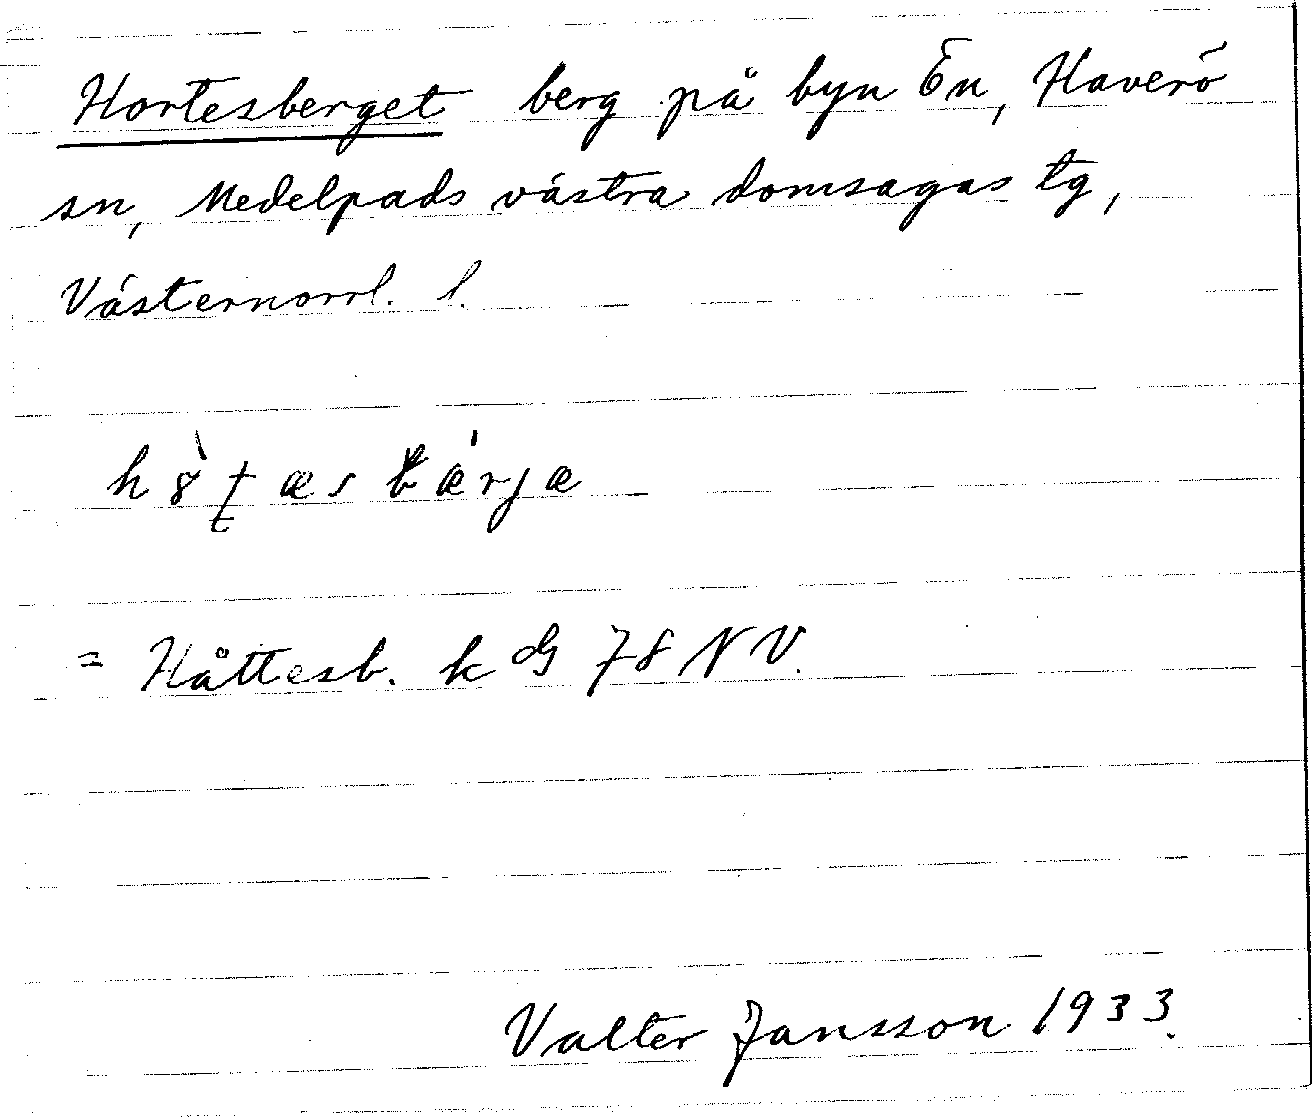 Hortesberget berg på byn Ön, Haverö
sn, Medelpads västra domsagas tg,
Västernorrl. l.
= Håttesb. k dG 78 NV.
Valter Jansson 1933.